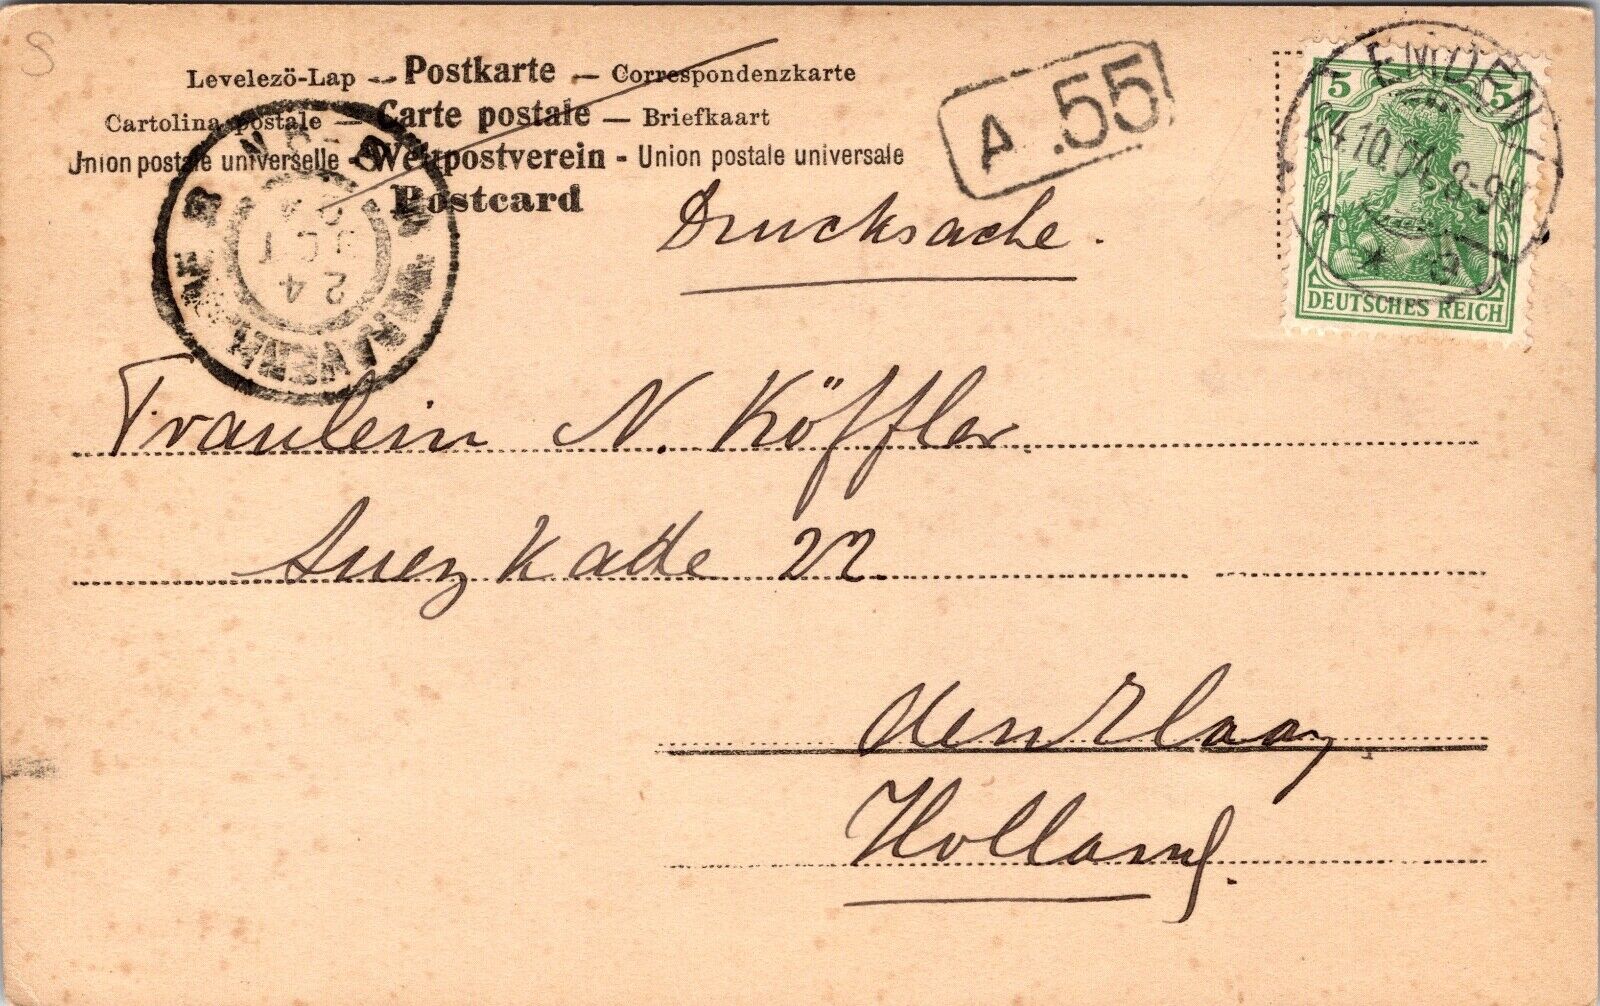 S
Levelezö-Lap -- Postkarte — Correspondenzkarte
Cartolina postale — Carte postale — Briefkaart
Union postale universelle - Weltpostverein - Union postale universale
Postcard
A .55
EMDEN
24.10.04. 8-9
* * a
5 5
DEUTSCHES REICH
24
OCT
Drucksache.
Fraulein N. Köffler
Suez Kade 22
den Haag
Holland.